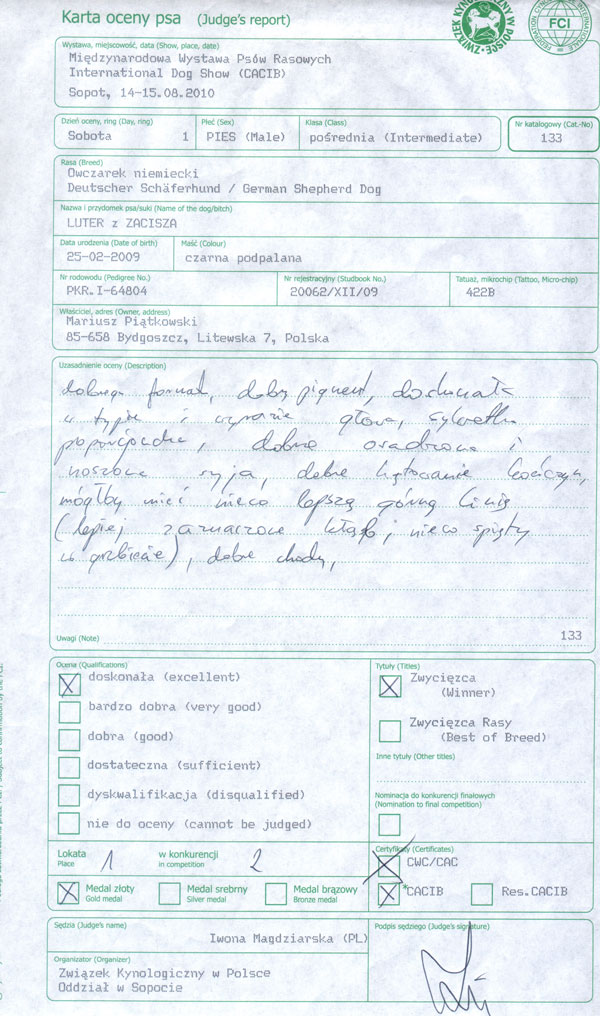 Karta oceny psa (Judge's report)
ZWIĄZEK KYNOLOGICZNY W POLSCE
FCI
Wystawa, miejscowość, data (Show, place, date)
Międzynarodowa Wystawa Psów Rasowych
International Dog Show (CACIB)
Sopot, 14-15.08.2010
Dzień oceny, ring (Day, ring) Płeć (Sex) Klasa (Class) Nr katalogowy (Cat.-No)
Sobota 1 PIES (Male) pośrednia (Intermediate) 133
Rasa (Breed)
Owczarek niemiecki
Deutscher Schäferhund / German Shepherd Dog
Nazwa i przydomek psa/suki (Name of the dog/bitch)
LUTER z ZACISZA
Data urodzenia (Date of birth) Maść (Colour)
25-02-2009 czarna podpalana
Nr rodowodu (Pedigree No.) Nr rejestracyjny (Studbook No.) Tatuaż, mikrochip (Tattoo, Micro-chip)
PKR.I-64804 20062/XII/09 422B
Właściciel, adres (Owner, address)
Mariusz Piątkowski
85-658 Bydgoszcz, Litewska 7, Polska
Uzasadnienie oceny (Description)
dobrego format, dobry pigment, doskonała
w typie i wyrazie głowa, sylwetka
proporcjonalna, dobrze osadzona i
noszona szyja, dobre kątowanie kończyn,
mógłby mieć nieco lepszą górną linię
(lepiej zaznaczone kłąb, nieco spięty
w grzbiecie), dobre chody,
Uwagi (Note) 133
Ocena (Qualifications) Tytuły (Titles)
doskonała (excellent) Zwycięzca
(Winner)
bardzo dobra (very good)
Zwycięzca Rasy
dobra (good) (Best of Breed)
Inne tytuły (Other titles)
dostateczna (sufficient)
dyskwalifikacja (disqualified) Nominacja do konkurencji finałowych
(Nomination to final competition)
nie do oceny (cannot be judged)
Lokata 1 w konkurencji 2 Certyfikaty (Certificates)
Place in competition CWC/CAC
Medal złoty Medal srebrny Medal brązowy *CACIB Res.CACIB
Gold medal Silver medal Bronze medal
Sędzia (Judge's name) Podpis sędziego (Judge's signature)
Iwona Magdziarska (PL)
Organizator (Organizer)
Związek Kynologiczny w Polsce
Oddział w Sopocie